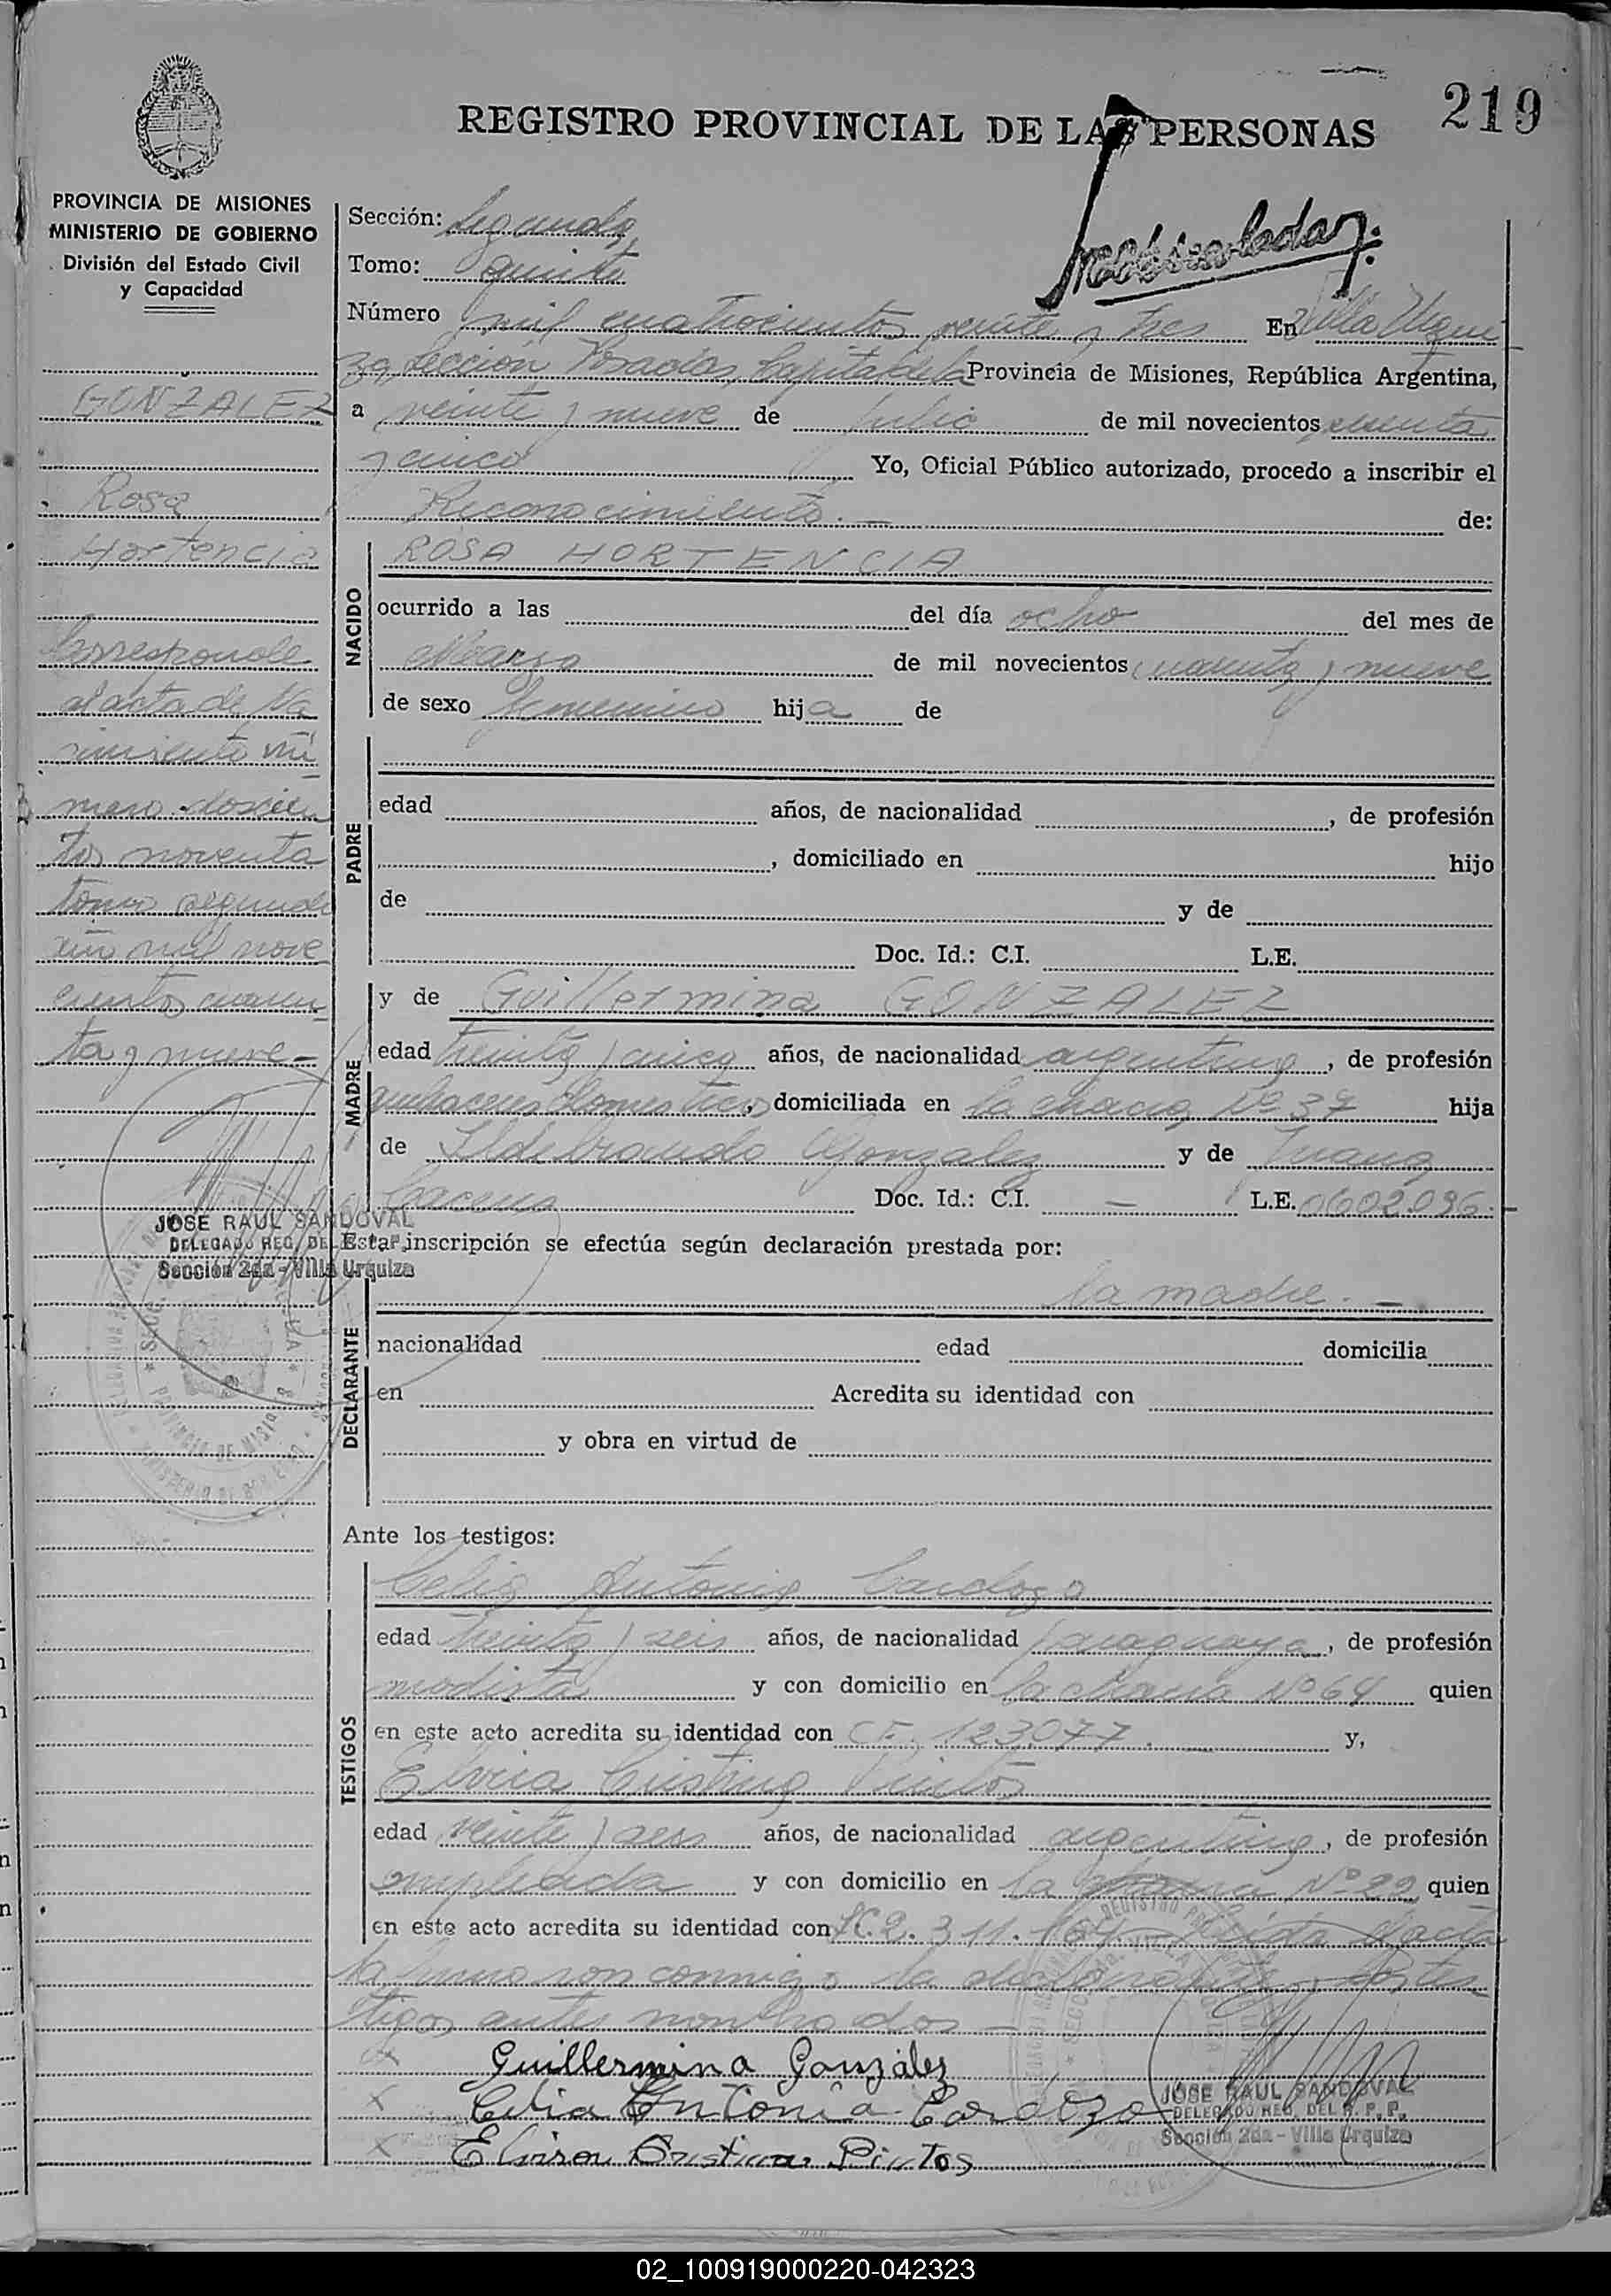 219
REGISTRO PROVINCIAL DE LAS PERSONAS
PROVINCIA DE MISIONES
MINISTERIO DE GOBIERNO
División del Estado Civil
y Capacidad
GONZALEZ
Rosa
Hortencia
Corresponde
al acta de Na
cimiento nú
mero doscien
tos noventa
tomo segundo
año mil nove
cientos cuaren
ta y nueve
JOSE RAUL SANDOVAL
DELEGADO REG. DEL R. P. P.
Sección 2da - Villa Urquiza
Sección: Segunda
Tomo: quinto
Número mil cuatrocientos veinte y tres En Villa Urqui
za, Sección Posadas, Capital de la Provincia de Misiones, República Argentina,
a veinte y nueve de julio de mil novecientos
y cinco Yo, Oficial Público autorizado, procedo a inscribir el
Reconocimiento.- de:
NACIDO
ROSA HORTENCIA
ocurrido a las del día ocho del mes de
Marzo de mil novecientos cuarenta y nueve
de sexo femenino hija de
PADRE
edad años, de nacionalidad , de profesión
, domiciliado en hijo
de y de
Doc. Id.: C.I. L.E.
MADRE
y de Guillermina GONZALEZ
edad treinta y cinco años, de nacionalidad argentina, de profesión
quehaceres domesticos, domiciliada en la chacra Nº 37 hija
de Ildebrando Gonzalez y de Juana
Doc. Id.: C.I. — L.E. 0602096.-
Esta inscripción se efectúa según declaración prestada por:
la madre.-
DECLARANTE
nacionalidad edad domicilia
en Acredita su identidad con
y obra en virtud de
Ante los testigos:
TESTIGOS
Celia Antonia Cardozo
edad treinta y seis años, de nacionalidad paraguaya, de profesión
modista y con domicilio en la chacra Nº 64 quien
en este acto acredita su identidad con 123.077. y,
Elvira Cristina Pintos
edad veinte y seis años, de nacionalidad argentina, de profesión
empleada y con domicilio en la chacra Nº 22 quien
en este acto acredita su identidad con LC. 2.311.164 Leida el acta
la firman conmigo la declarante y los tes
tigos antes nombrados
Guillermina González
Celia Antonia Cardozo
Elvira Cristina Pintos
JOSE RAUL SANDOVAL
DELEGADO REG. DEL R. P. P.
Sección 2da - Villa Urquiza
02_100919000220-042323